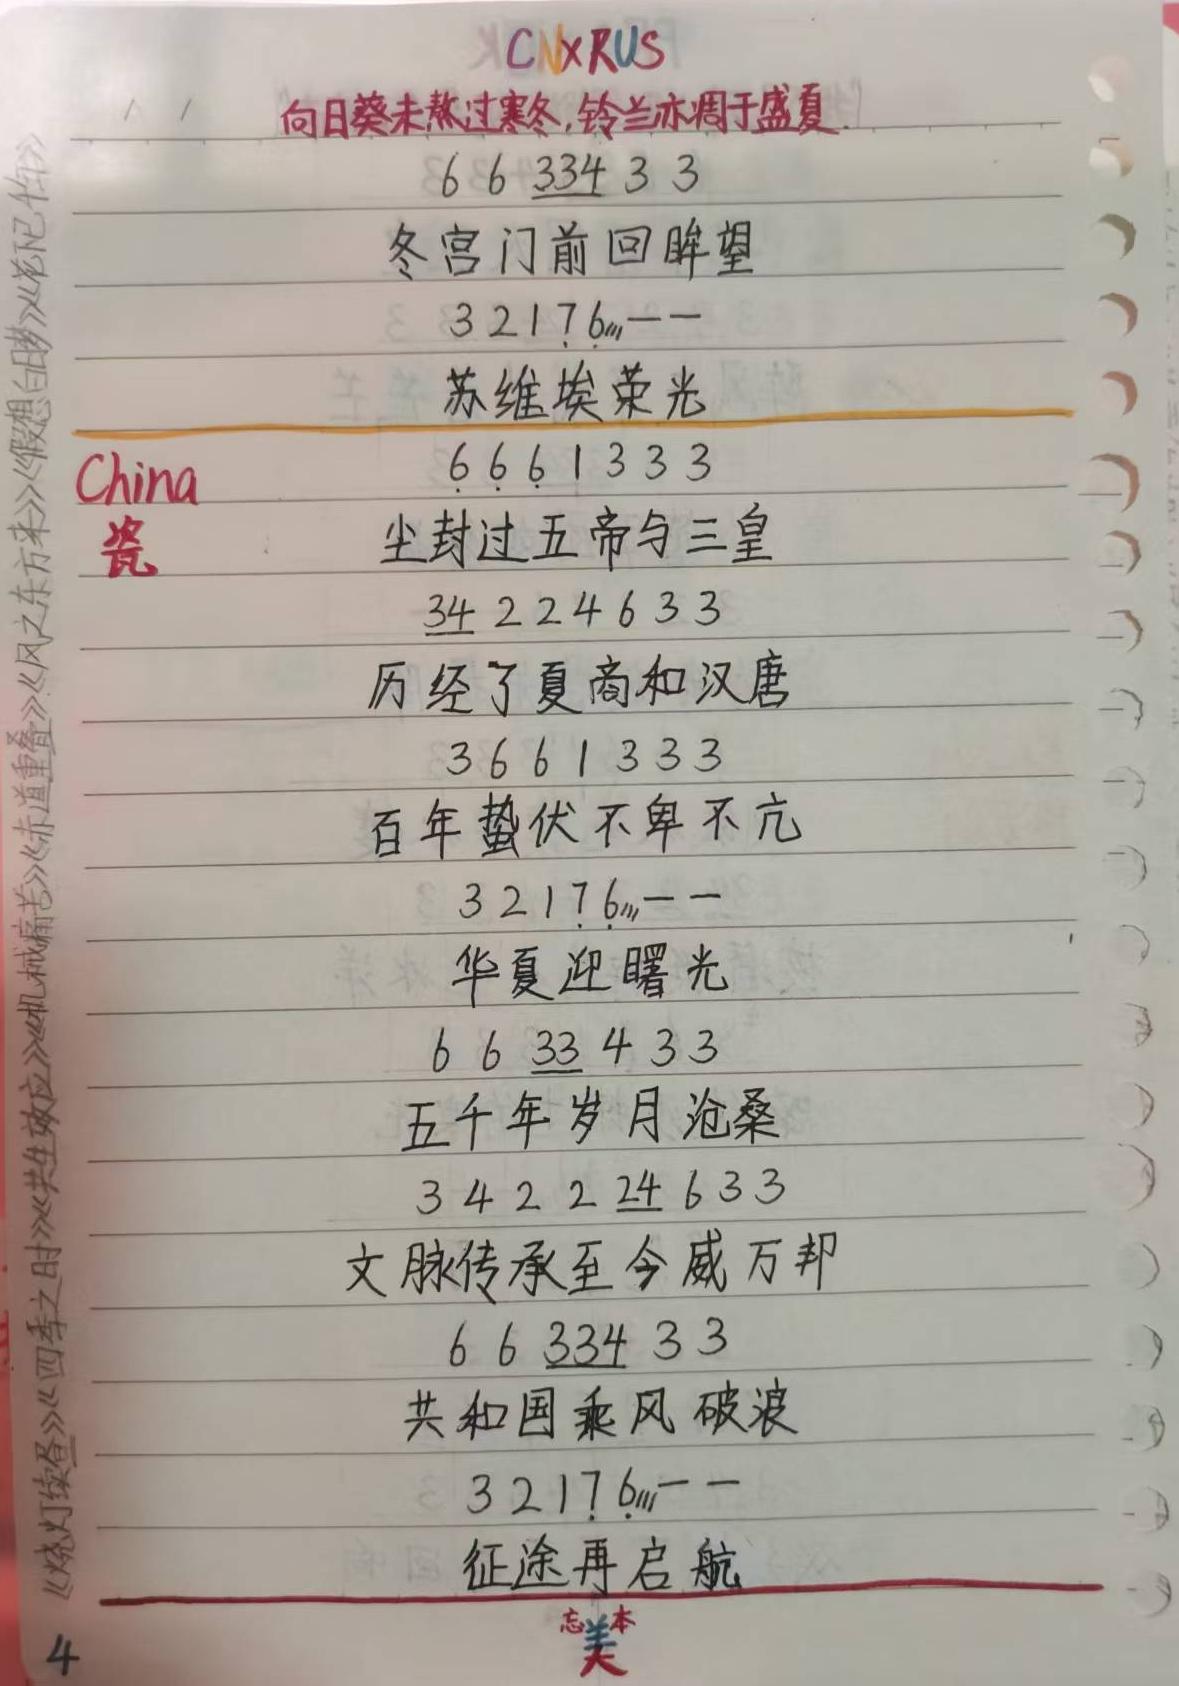 CNxRUS
向日葵未熬过寒冬,铃兰亦凋于盛夏.
6 6 334 3 3
冬宫门前回眸望
3 2 1 7 6 — —
苏维埃荣光
China
瓷
6 6 6 1 3 3 3
尘封过五帝与三皇
34 2 2 4 6 3 3
历经了夏商和汉唐
3 6 6 1 3 3 3
百年蛰伏不卑不亢
3 2 1 7 6 — —
华夏迎曙光
6 6 33 4 3 3
五千年岁月沧桑
3 4 2 2 24 6 3 3
文脉传承至今威万邦
6 6 334 3 3
共和国乘风破浪
3 2 1 7 6 — —
征途再启航
忘本
美
4
《烧灯续昼》《四季之时》《共生效应》《机械痛苦》《赤道重叠》《风之东方来》《假想白日梦》《花已作》